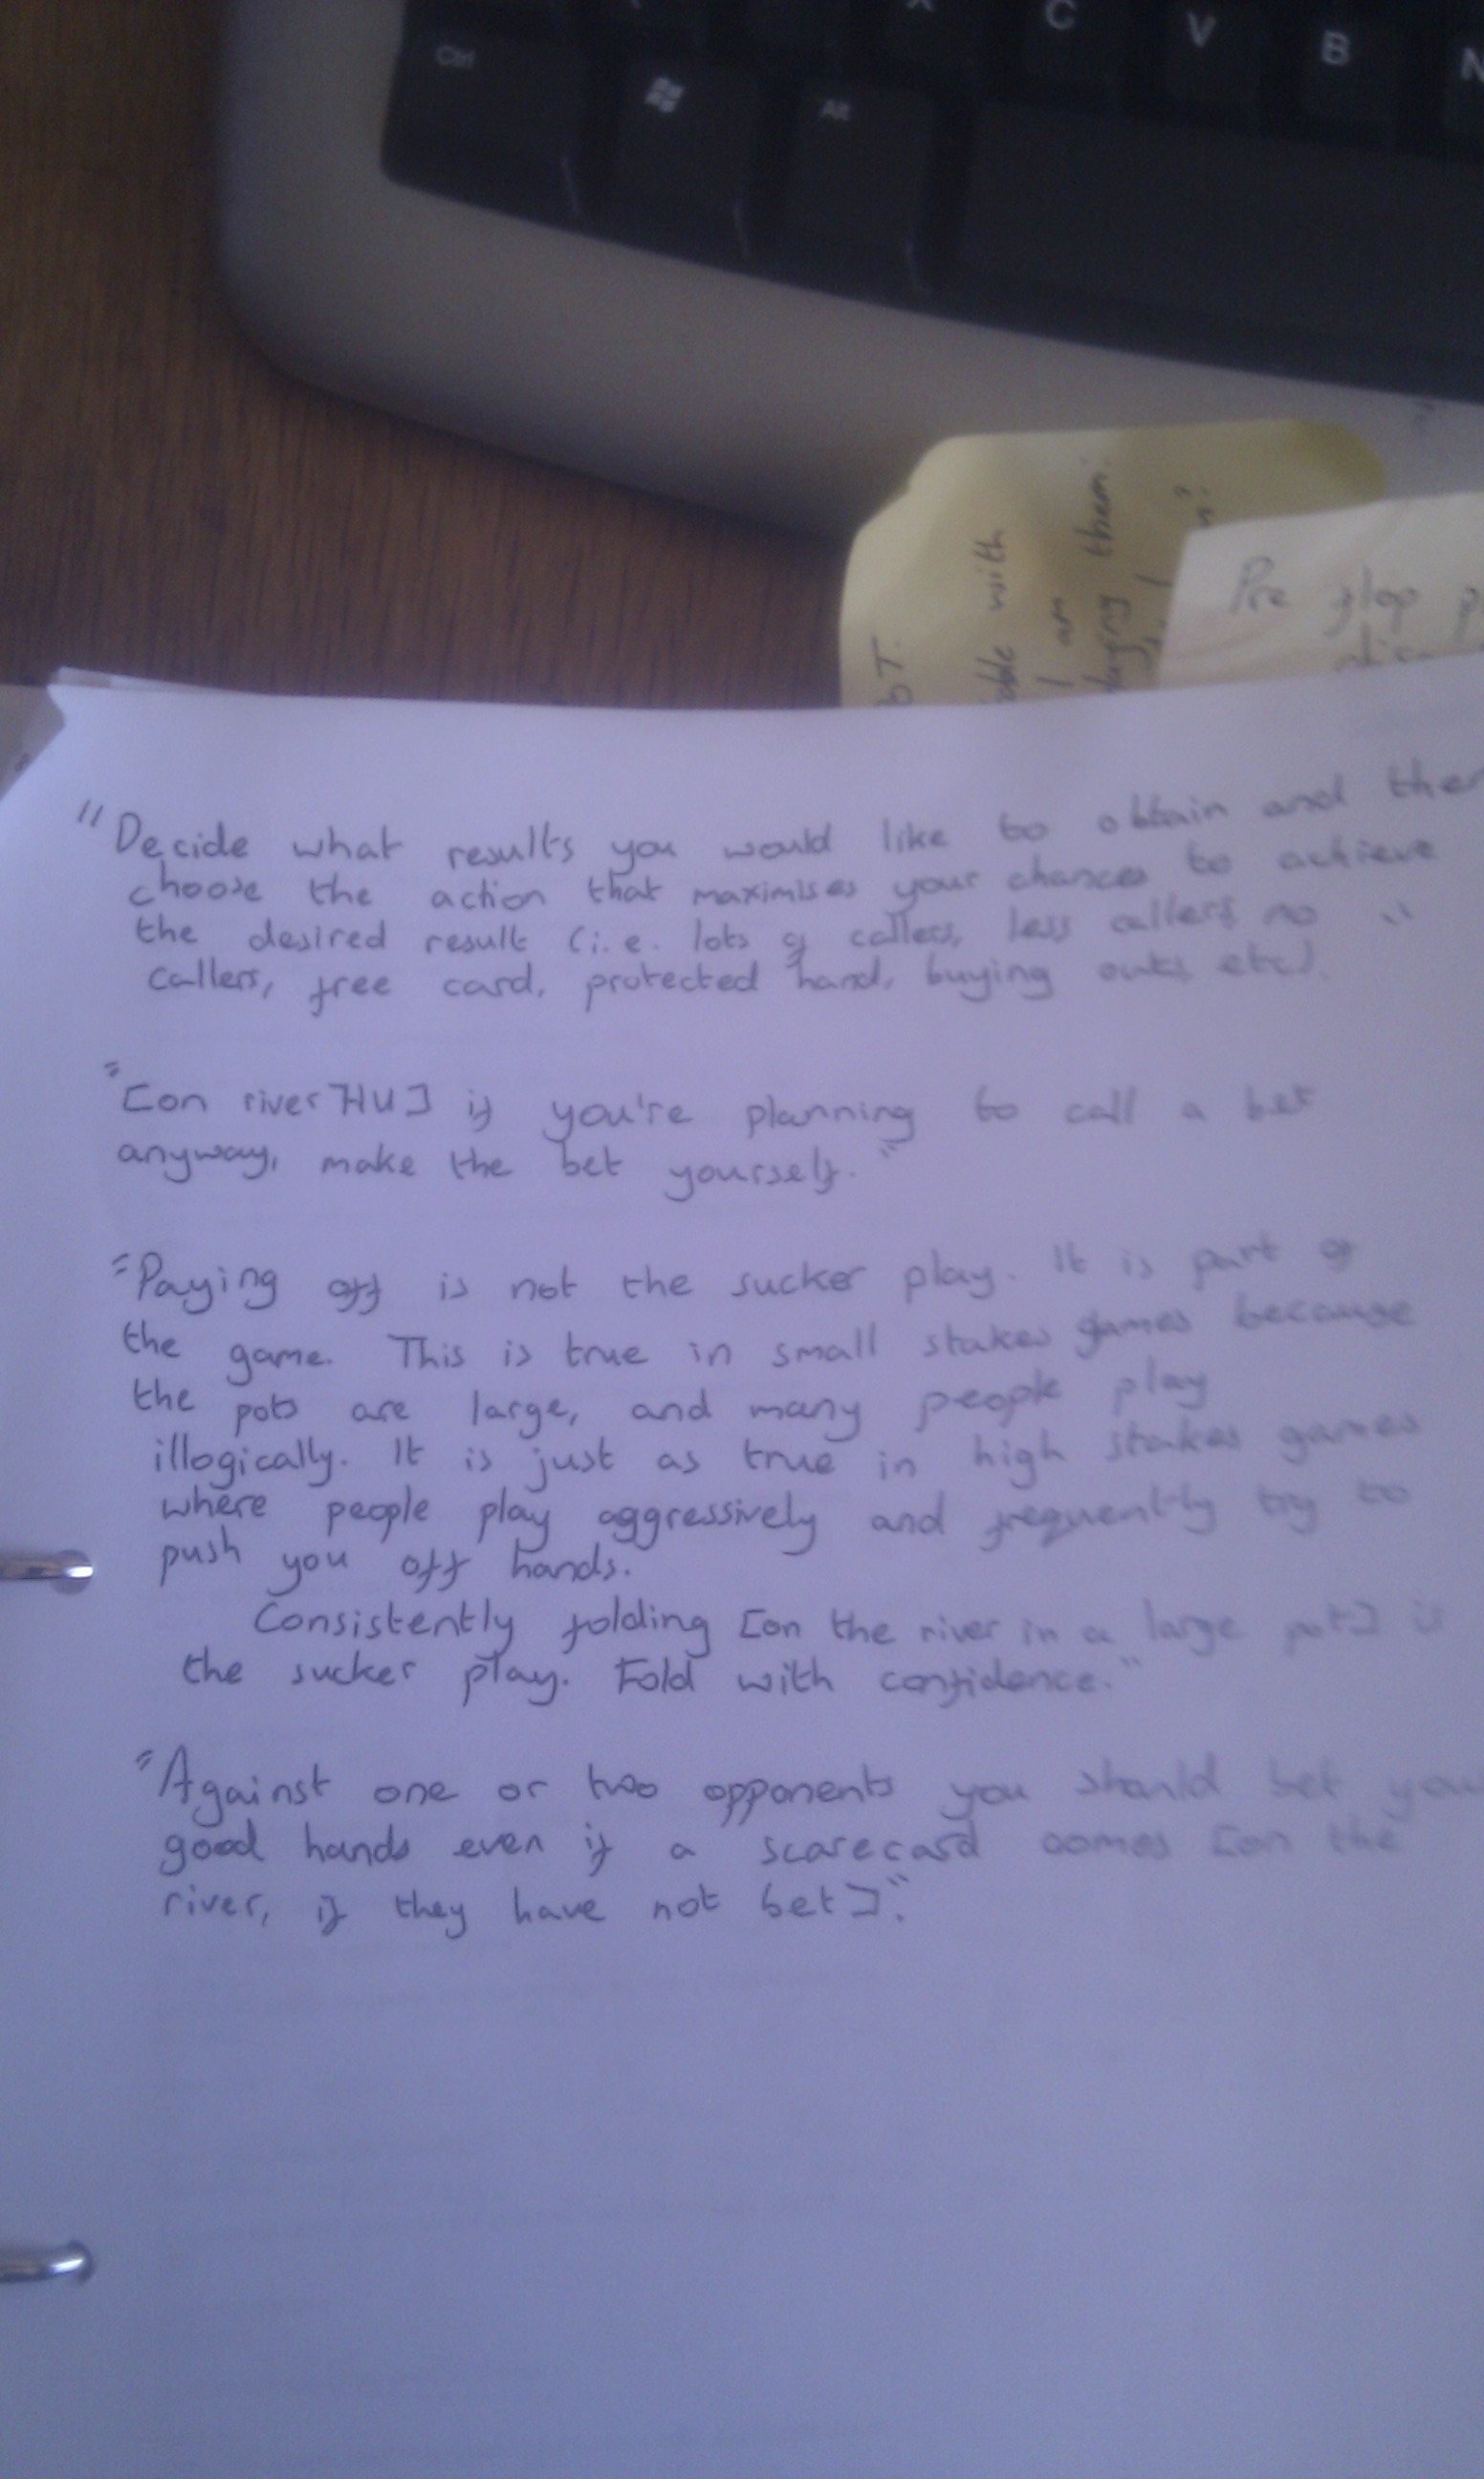 C V B N
Ctrl Alt
with
I am
them.
Pre flop
"Decide what results you would like to obtain and then
choose the action that maximises your chances to achieve
the desired result (i.e. lots of callers, less callers, no "
callers, free card, protected hand, buying outs, etc).
"[on river HU] if you're planning to call a bet
anyway, make the bet yourself."
"Paying off is not the sucker play. It is part of
the game. This is true in small stakes games because
the pots are large, and many people play
illogically. It is just as true in high stakes games
where people play aggressively and frequently try to
push you off hands.
Consistently folding [on the river in a large pot] is
the sucker play. Fold with confidence."
"Against one or two opponents you should bet your
good hands even if a scarecard comes [on the
river, if they have not bet]."